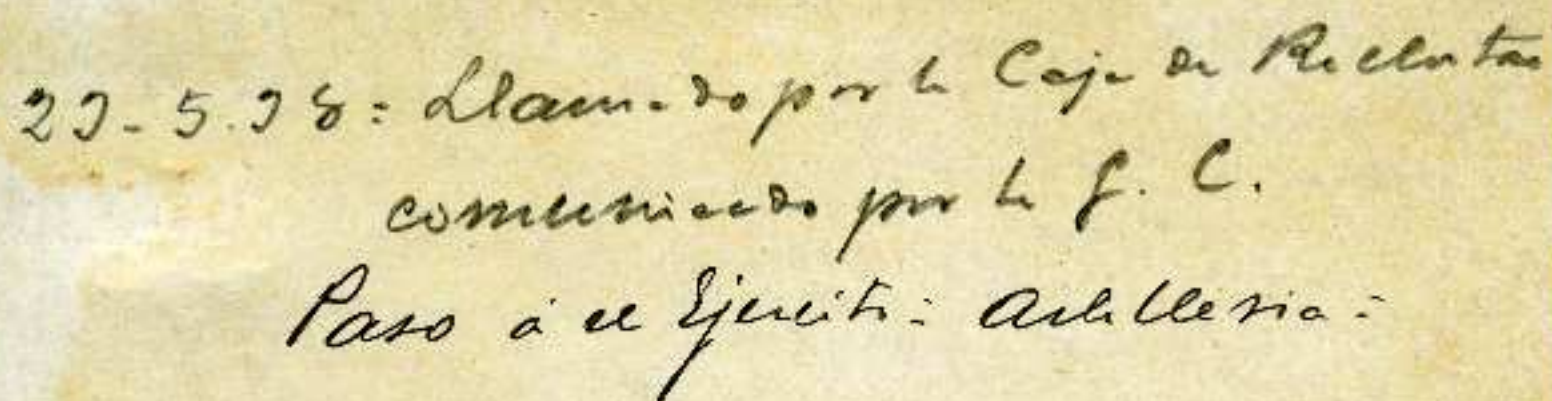 23-5-38: Llamado por la Caja de Reclutas
comunicado por la G. C.
Paso á el Ejercito: Artilleria: